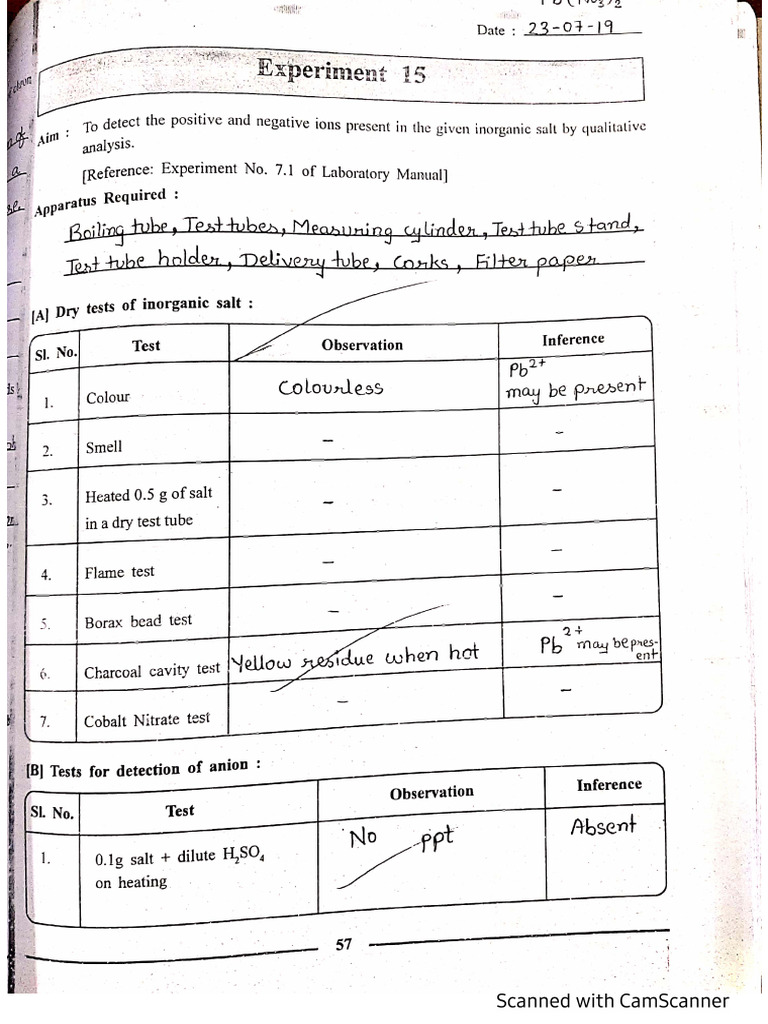 Pb(NO3)2
Date : 23-07-19
Experiment 15
Aim : To detect the positive and negative ions present in the given inorganic salt by qualitative
analysis.
[Reference: Experiment No. 7.1 of Laboratory Manual]
Apparatus Required :
Boiling tube, Test tubes, Measuring cylinder, Test tube stand,
Test tube holder, Delivery tube, Corks, Filter paper
[A] Dry tests of inorganic salt :
Sl. No. Test Observation Inference
1. Colour Colourless Pb²⁺ may be present
2. Smell – –
3. Heated 0.5 g of salt – –
in a dry test tube
4. Flame test – –
5. Borax bead test – –
6. Charcoal cavity test Yellow residue when hot Pb²⁺ may be pres-
ent
7. Cobalt Nitrate test – –
[B] Tests for detection of anion :
Sl. No. Test Observation Inference
1. 0.1g salt + dilute H₂SO₄ No ppt Absent
on heating
57
Scanned with CamScanner